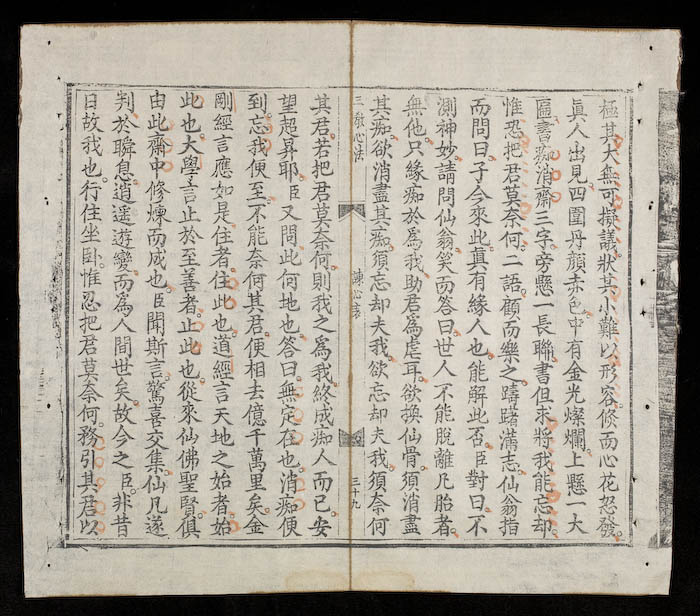 極其大無可擬議。狀其小難以形容。倏而心花怒發。
眞人出見。四圍丹顏赤色中有金光燦爛。上懸一大
匾書痴消齋三字。旁懸一長聯書但求將我能忘却。
惟恐把君莫奈何。二語。顧而樂之躊躇滿志。仙翁指
而問曰子今來此。眞有緣人也能解此否。臣對曰。不
測神妙請問仙翁笑而答曰世人不能脫離凡胎者。
無他只緣痴於爲我助君爲虐耳。欲換仙骨須消盡
其痴欲消盡其痴須忘却夫我欲忘却夫我須奈何
三教心法
諫心表
三十九
其君。若把君莫奈何則我之爲我終成痴人而已。安
望超昇耶。臣又問此何地也答曰。無定在也。消痴便
到。忘我便至。不能奈何其君。便相去億千萬里矣金
剛經言應如是住者住此也。道經言天地之始者始
此也。大學言止於至善者。止此也從來仙佛聖賢。俱
由此齋中修煉而成也。臣聞斯言。驚喜交集。仙凡遂
判。於瞬息。逍遥遊變而爲人間世矣。故今之臣。非昔
日故我也。行住坐臥。惟恐把君莫奈何。務引其君以